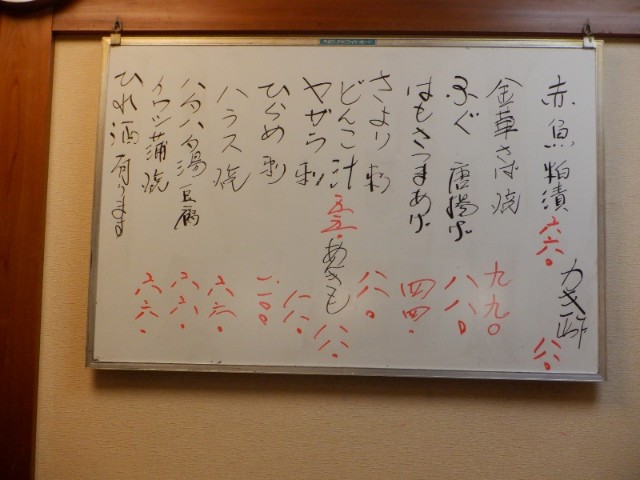 赤魚粕漬 六六〇
カキ酢 八八〇
金華さば焼 九九〇
ふぐ唐揚げ 八八〇
はもさつまあげ 四四〇
さより刺 八八〇
どんこ汁 五五〇
あきも 八八〇
ヤガラ刺 八八〇
ひらめ刺 一、一〇〇
ハラス焼 六六〇
ハタハタ湯豆腐 六六〇
イワシ蒲焼 六六〇
ひれ酒有ります